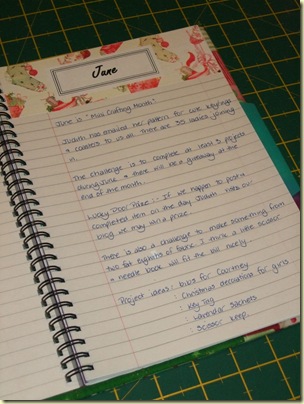 June
June is "Mini Crafting Month"
Judith has emailed her pattern for cute keyrings
& coasters to us all. There are 35 ladies joining
in.
The challenge is to complete at least 5 projects
during June & there will be a giveaway at the
end of the month.
Lucky Door Prize :- If we happen to post a
completed item on the day Judith rolls on
blog we may win a prize.
There is also a challenge to make something from
two fat eighths of fabric. I think a little scissor
& needle book will fit the bill nicely.
Project ideas : bibs for Courtney
: Christmas decorations for girls
: Key Tag
: Lavender sachets
: Scissor keep.